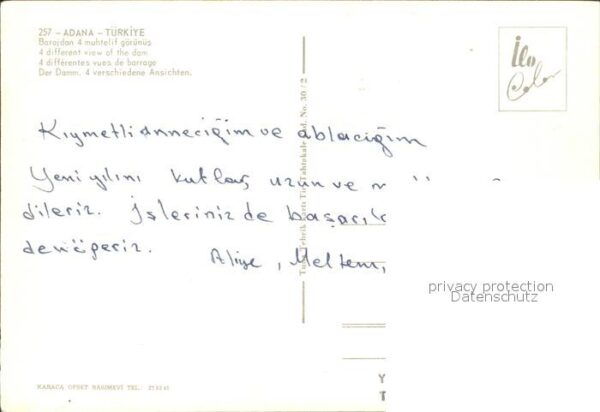 257 - ADANA - TÜRKİYE
Barajdan 4 muhtelif görünüs
4 different view of the dam
4 différentes vues de barrage
Der Damm. 4 verschiedene Ansichten.
İlo
Color
Kıymetli anneciğim ve ablacığım
Yeni yılını kutlar, uzun ve
dileriz. İşlerinizde
öperiz.
Aliye, Meltem,
No. 30/2
privacy protection
Datenschutz
KARACA OFSET BASIMEVİ TEL.
Y
T